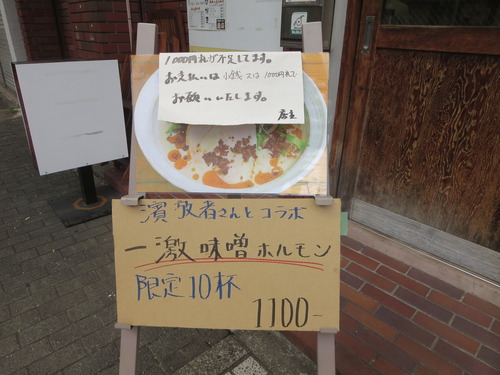 1000円札が不足してます。
お支払いは小銭又は1000円札で
お願いいたします。
店主
濱 牧者さんとコラボ
一激味噌ホルモン
限定10杯
1100-